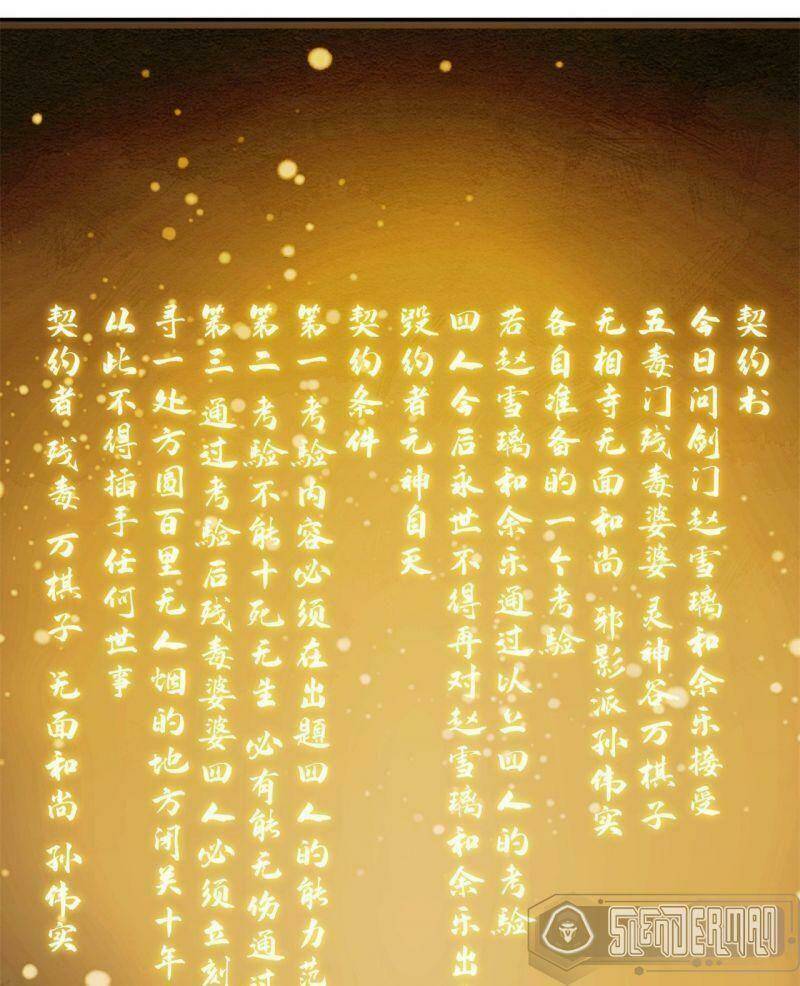 契约书
今日问剑门赵雪璃和余乐接受
五毒门残毒婆婆 灵神谷万棋子
无相寺无面和尚 邪影派孙伟实
各自准备的一个考验
若赵雪璃和余乐通过以上四人的考验
四人今后永世不得再对赵雪璃和余乐出
毁约者元神自灭
契约条件
第一 考验内容必须在出题四人的能力范
第二 考验不能十死无生 必有能无伤通过
第三 通过考验后残毒婆婆四人必须立刻
寻一处方圆百里无人烟的地方闭关十年
从此不得插手任何世事
契约者残毒 万棋子 无面和尚 孙伟实
SLENDERMAN